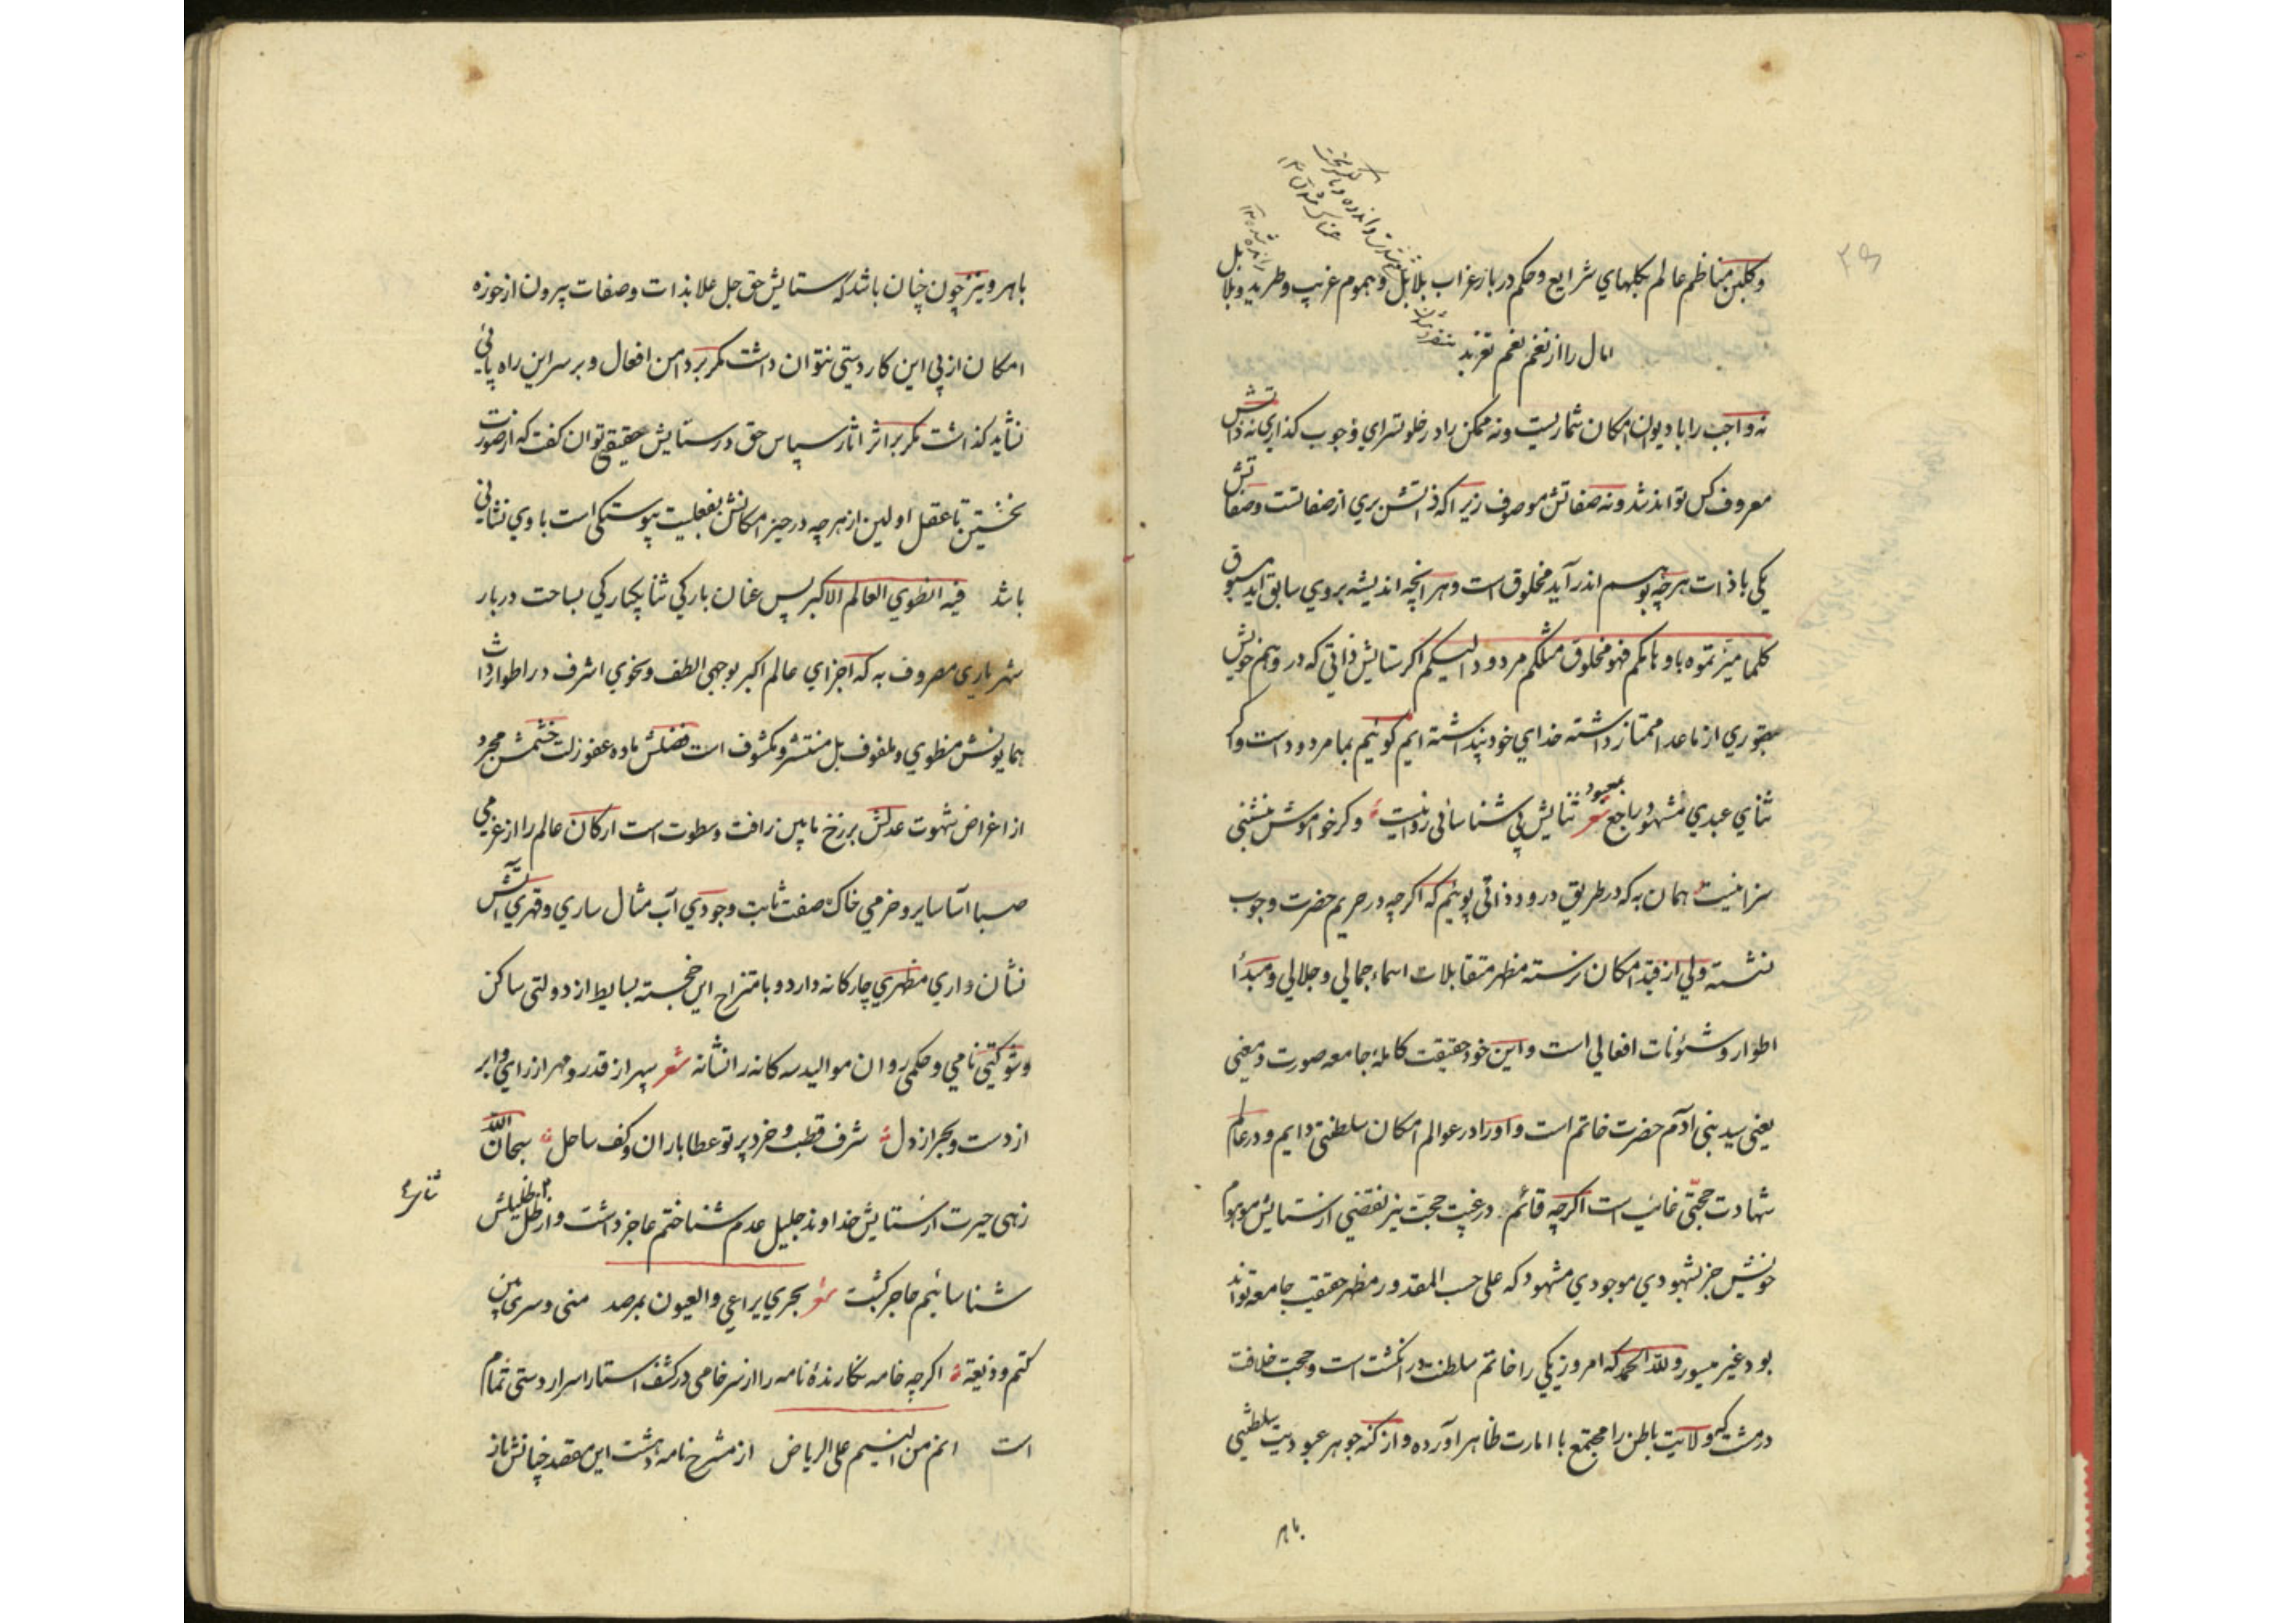 و گلبن مناظم عالم بگلهای شرایع و حکم در باز غراب بلابل و هموم غریب و طرید و بلابل
امال را از نغم نغم
نه واجب را با دیوان امکان شماریست و نه ممکن را در خلوتسرای وجوب کذاری نه ذاتش
معروف کس تواند شد و نه صفاتش موصوف زیرا که ذاتش بری از صفاتست و صفاتش
یکی با ذات هر چه بوهم اندر آید مخلوق است و هر آنچه اندیشه بر وی سابق آید مسبوق
کلما میز تموه باوهامکم فهو مخلوق مثلکم مردود الیکم اکر ستایش ذاتی که در وهم خویش
بصوری از ماعدا ممتاز داشته خدای خود پنداشته ایم کوئیم بما مردود است و اکر
ثنای عبدی مشهود راجع بمعبود شعر ثنایش بی شناسائی روا نیست وکر خواموش بنشینی
سزا نیست همان به که در طریق درود ذاتی پوئیم که اکرچه در حریم حضرت وجوب
ننشسته ولی از قید امکان رسته مظهر متقابلات اسماء جمالی و جلالی و مبدأ
اطوار و شئونات افعالی است و این خود حقیقت کاملهٔ جامعه صورت و معنی
یعنی سید بنی آدم حضرت خاتم است و او را در عوالم امکان سلطنتی دایم و در عالم
شهادت حجتی غائب است اکرچه قائم در غیبت حجت نیز نفضی از ستایش موهوم
خویش جز بشهودی موجودی مشهود که علی حسب المقدور مظهر حقیقت جامعه تواند
بود غیر میسور ولله الحمد که امروز یکی را خاتم سلطنت در انکشت است و حجت خلافت
در مشت که ولایت باطن را مجتمع با امارت ظاهر آورده و از کنه جوهر عبودیت سلطنتی
باهر
باهر و نیز چون چنان باشد که ستایش حق جل علا بذات و صفات بیرون از حوزه
امکان از پی این کار دستی نتوان داشت مکر بر دامن افعال و بر سر این راه پائی
نشاید کذاشت مکر بر اثر اثار سپاس حق در ستایش حقیقی توان کفت که از صورت
نخستین تا عقل اولین از هر چه در حیز امکانش بفعلیت پیوستکی است با وی نشانی
باشد فیه انطوی العالم الاکبر پس عنان بارکی ثنا یکبارکی بساحت دربار
شهریاری مصروف به که اجزای عالم اکبر بوجهی الطف و نحوی اشرف در اطوار ذات
همایونش منطوی و ملفوف بل منتشر و مکشوف است فضلش ماده عفو زلت خشمش مجرد
از اغراض شهوت عدلش برزخ مابین رافت و سطوت است ارکان عالم را از عزمی
صبا آسا سایر و حزمی خاک صفت ثابت و جودی آب مثال ساری و قهری آتش
نشان واری مظهری چارکانه دارد و با متزاج این خجسته بسایط از دولتی ساکن
و شوکتی نامی و حکمی روان موالید سه کانه را نشانه شعر سپهر از قدر و مهر از رای و ابر
از دست و بحر از دل شرف قطب و خرد پرتو عطا باران و کف ساحل سبحان الله
زهی حیرت از ستایش خداوند جلیل عدم شناختم عاجز داشت و از ظل ظلیلش
شناسائیم عاجز کشت شعر بجری یراعی والعیون بمرصد منی و سری بین
کتم و ذیعة اکرچه خامه نکارندهٔ نامه را از سر خامی در کشف استار اسرار دستی تمام
است انم من النسیم علی الریاض از مشرح نامه داشت این مقصد چنانش باز